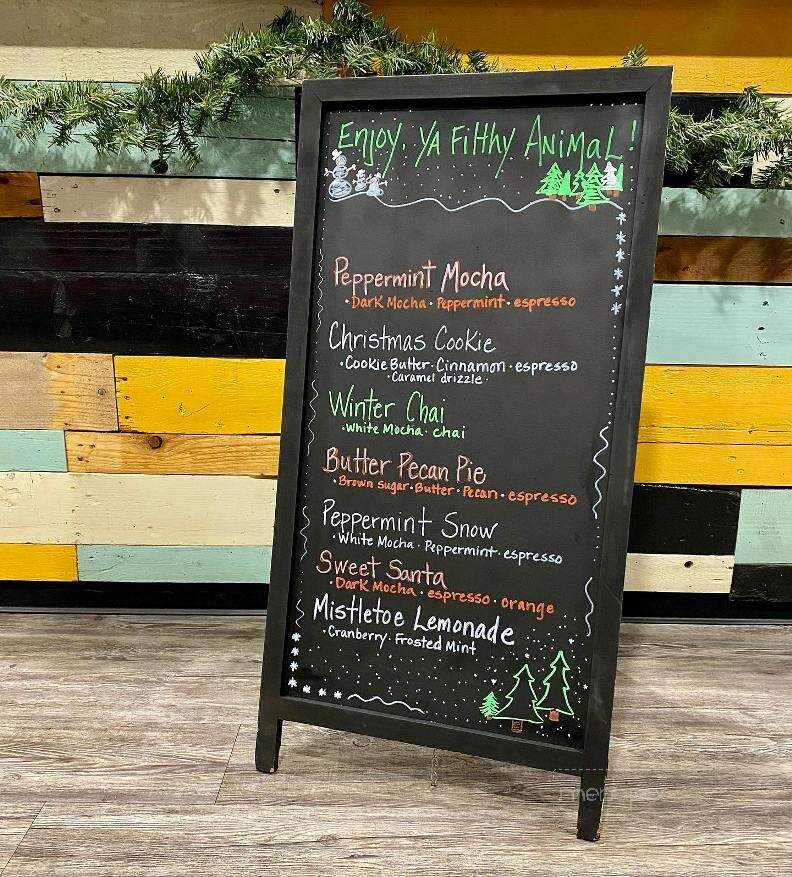 Enjoy Ya Filthy Animal!
Peppermint Mocha
• Dark Mocha • Peppermint • espresso
Christmas Cookie
• Cookie Butter • Cinnamon • espresso
• Caramel drizzle •
Winter Chai
• White Mocha • chai
Butter Pecan Pie
• Brown Sugar • Butter • Pecan • espresso
Peppermint Snow
• White Mocha • Peppermint • espresso
Sweet Santa
• Dark Mocha • espresso • orange
Mistletoe Lemonade
• Cranberry • Frosted Mint